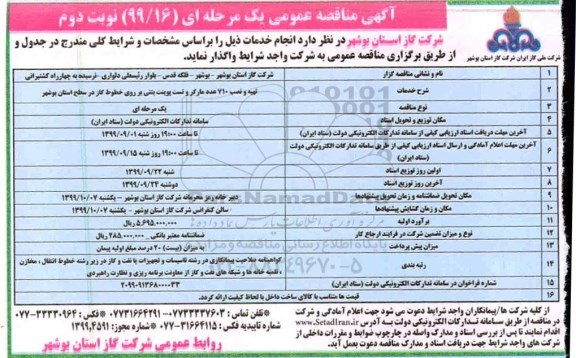 آگهی مناقصه عمومی یک مرحله ای (۹۹/۱۶) نوبت دوم
شرکت گاز استان بوشهر در نظر دارد انجام خدمات ذیل را براساس مشخصات و شرایط کلی مندرج در جدول و
از طریق برگزاری مناقصه عمومی به شرکت واجد شرایط واگذار نماید.
شرکت ملی گاز ایران شرکت گاز استان بوشهر
۱ نام و نشانی مناقصه گزار شرکت گاز استان بوشهر - بوشهر - فلکه قدس - بلوار رئیسعلی دلواری - نرسیده به چهارراه کشتیرانی
۲ شرح خدمات تهیه و نصب ۷۱۰ عدد مارکر و تست پوینت بتنی بر روی خطوط گاز در سطح استان بوشهر
۳ نوع مناقصه یک مرحله ای
۴ مکان توزیع و تحویل اسناد سامانه تدارکات الکترونیکی دولت (ستاد ایران)
۵ آخرین مهلت دریافت اسناد ارزیابی کیفی از سامانه تدارکات الکترونیکی دولت (ستاد ایران) تا ساعت ۱۹:۰۰ روز شنبه ۱۳۹۹/۰۹/۰۱
۶ آخرین مهلت اعلام آمادگی و ارسال اسناد ارزیابی کیفی از طریق سامانه تدارکات الکترونیکی دولت (ستاد ایران) تا ساعت ۱۹:۰۰ روز شنبه ۱۳۹۹/۰۹/۱۵
۷ اولین روز توزیع اسناد شنبه ۱۳۹۹/۰۹/۲۲
۸ آخرین روز توزیع اسناد دوشنبه ۱۳۹۹/۰۹/۲۴
۹ مکان تحویل ضمانتنامه و زمان تحویل پیشنهادها دبیر خانه رمز محرمانه شرکت گاز استان بوشهر - یکشنبه ۱۳۹۹/۱۰/۰۷
۱۰ مکان و زمان گشایش پیشنهادها سالن کنفرانس شرکت گاز استان بوشهر - یکشنبه ۱۳۹۹/۱۰/۰۷
۱۱ برآورد اولیه ۵،۶۹۵،۰۰۰،۰۰۰ ریال
۱۲ نوع و میزان تضمین شرکت در فرایند ارجاع کار ضمانتنامه معتبر بانکی ۲۸۵،۰۰۰،۰۰۰ ریال
۱۳ میزان پیش پرداخت به میزان (بیست) ۲۰ درصد مبلغ اولیه پیمان
۱۴ رتبه بندی گواهینامه صلاحیت پیمانکاری در رشته تاسیسات و تجهیزات یا نفت و گاز در زیر رشته خطوط انتقال ، مخازن ، تلمبه خانه ها و شبکه های نفت و گاز از معاونت برنامه ریزی و نظارت راهبردی
۱۵ شماره فراخوان در سامانه تدارکات الکترونیکی دولت (ستاد ایران) ۲۰۹۹۰۹۱۳۶۸۰۰۰۰۳۳
۱۶ قیمت ها متناسب با کالای ساخت داخل با لحاظ کیفیت ارائه گردد.
از کلیه شرکت ها/پیمانکاران واجد شرایط دعوت می شود جهت اعلام آمادگی و شرکت
در مناقصه از طریق سامانه تدارکات الکترونیکی دولت به آدرس www.SetadIran.ir
اقدام نمایند تا پس از بررسی اسناد و مدارک واصله در چارچوب ضوابط و مقررات داخلی از
شرکت های واجد شرایط جهت دریافت اسناد و مدارک مناقصه دعوت بعمل آید.
تلفن تماس: ۰۷۷۳۳۳۲۷۶۰۳-۰۷۷۳۱۶۶۴۲۹۱ فکس: ۰۷۷-۳۳۳۳۰۹۶۴
شماره تاییدیه فکس: ۰۷۷-۳۱۶۶۴۱۱۵ شماره مجوز: ۱۳۹۹،۴۵۹۱
روابط عمومی شرکت گاز استان بوشهر